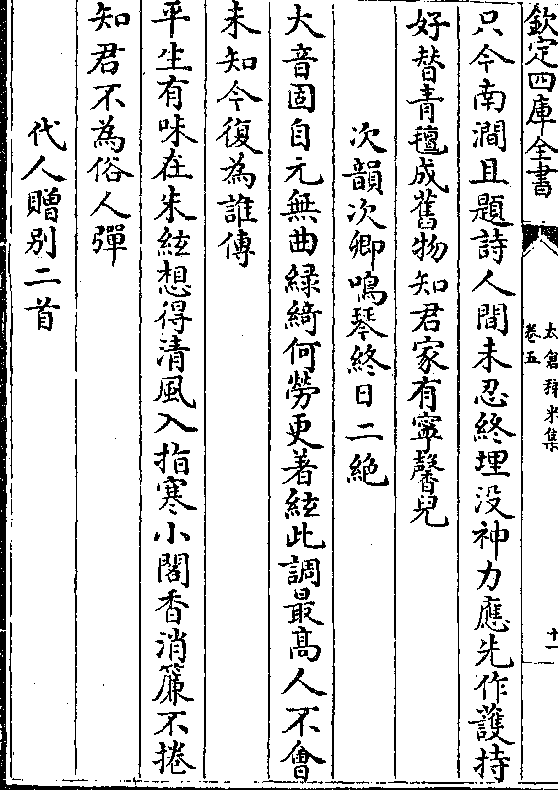 欽定四庫全書
太倉稊米集
卷五
十一
只今南澗且題詩人間未忍終埋没神力應先作護持
好替青氊成舊物知君家有寧馨兒
次韻次卿鳴琴終日二絶
大音固自元無曲緑綺何勞更著絃此調最髙人不㑹
未知今復為誰傳
平生有味在朱絃想得清風入指寒小閣香消簾不捲
知君不為俗人彈
代人贈别二首